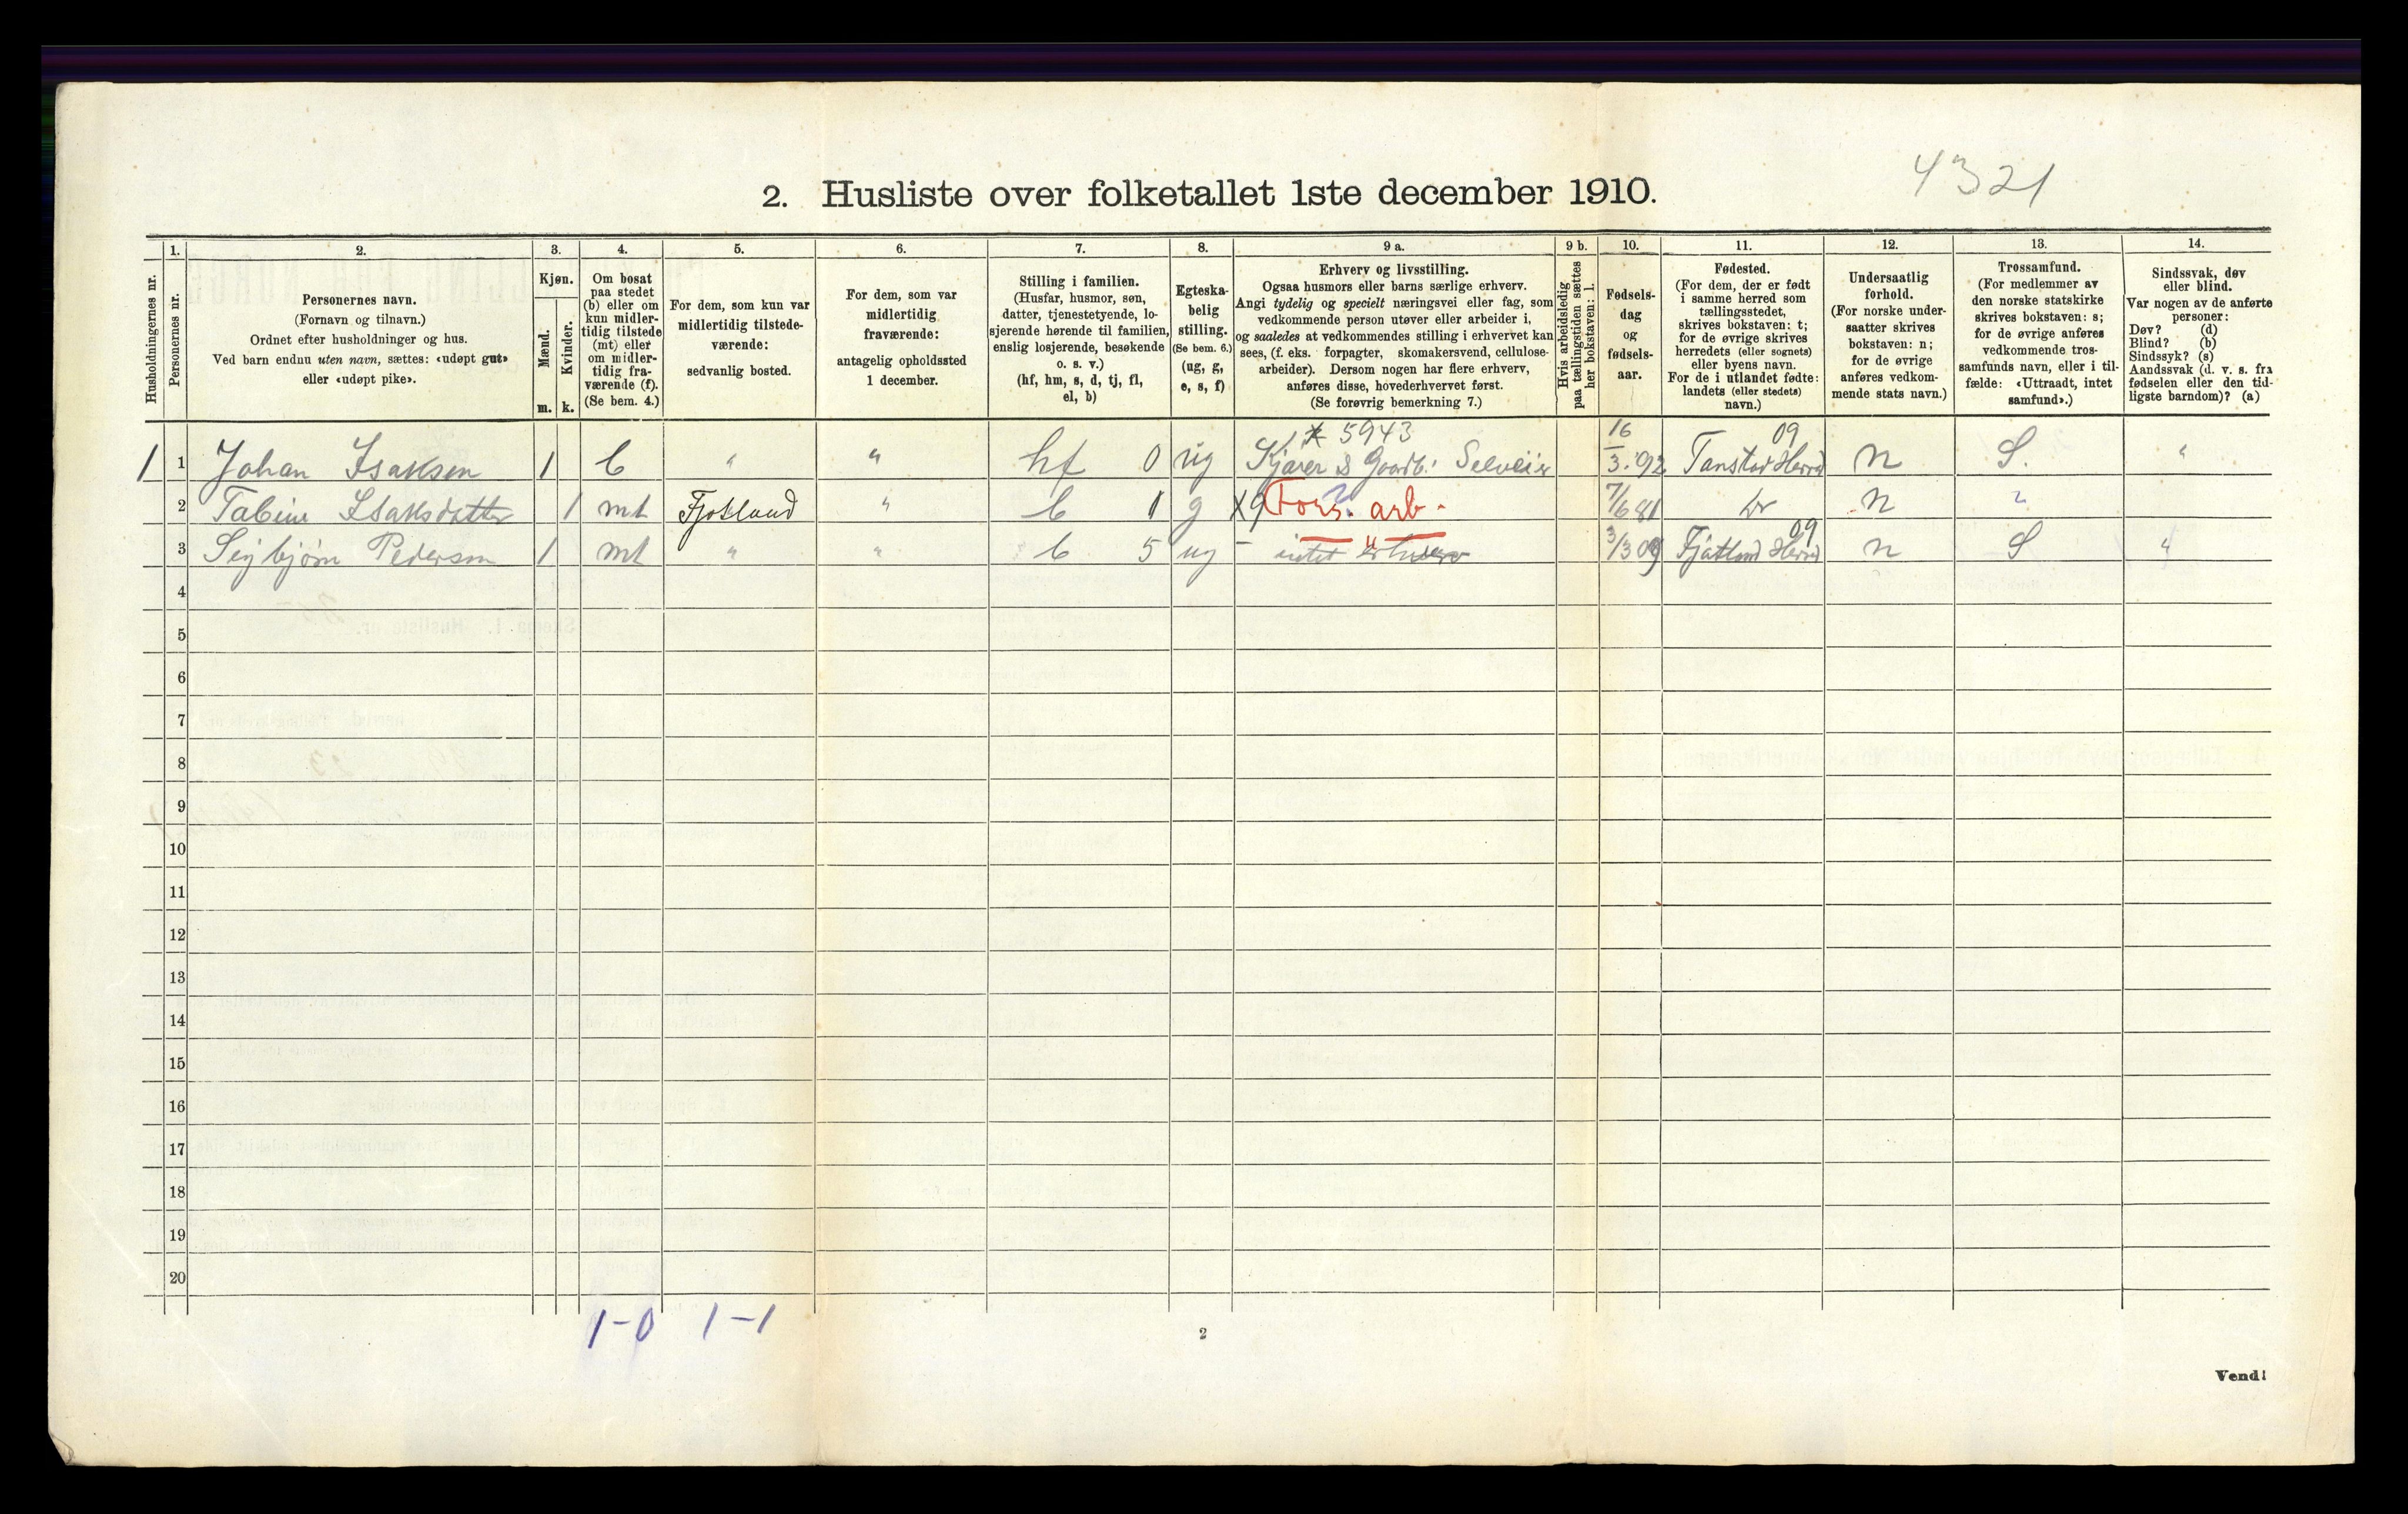 4321
2. Husliste over folketallet 1ste december 1910.
Husholdningernes nr.
1.
Personernes nr.
2.
Personernes navn.
(Fornavn og tilnavn.)
Ordnet efter husholdninger og hus.
Ved barn endnu uten navn, sættes: «udøpt gut»
eller «udøpt pike».
3.
Kjøn.
Mænd.
Kvinder.
m. k.
4.
Om bosat
paa stedet
(b) eller om
kun midler-
tidig tilstede
(mt) eller
om midler-
tidig fra-
værende (f).
(Se bem. 4.)
5.
For dem, som kun var
midlertidig tilstede-
værende:
sedvanlig bosted.
6.
For dem, som var
midlertidig
fraværende:
antagelig opholdssted
1 december.
7.
Stilling i familien.
(Husfar, husmor, søn,
datter, tjenestetyende, lo-
sjerende hørende til familien,
enslig losjerende, besøkende
o. s. v.)
(hf, hm, s, d, tj, fl,
el, b)
8.
Egteska-
belig
stilling.
(Se bem. 6.)
(ug, g,
e, s, f)
9 a.
Erhverv og livsstilling.
Ogsaa husmors eller barns særlige erhverv.
Angi tydelig og specielt næringsvei eller fag, som
vedkommende person utøver eller arbeider i,
og saaledes at vedkommendes stilling i erhvervet kan
sees, (f. eks. forpagter, skomakersvend, cellulose-
arbeider). Dersom nogen har flere erhverv,
anføres disse, hovederhvervet først.
(Se forøvrig bemerkning 7.)
9 b.
Hvis arbeidsledig
paa tællingstiden sættes
her bokstaven: l.
10.
Fødsels-
dag
og
fødsels-
aar.
11.
Fødested.
(For dem, der er født
i samme herred som
tællingsstedet,
skrives bokstaven: t;
for de øvrige skrives
herredets (eller sognets)
eller byens navn.
For de i utlandet fødte:
landets (eller stedets)
navn.)
12.
Undersaatlig
forhold.
(For norske under-
saatter skrives
bokstaven: n;
for de øvrige
anføres vedkom-
mende stats navn.)
13.
Trossamfund.
(For medlemmer av
den norske statskirke
skrives bokstaven: s;
for de øvrige anføres
vedkommende tros-
samfunds navn, eller i til-
fælde: «Uttraadt, intet
samfund».)
14.
Sindssvak, døv
eller blind.
Var nogen av de anførte
personer:
Døv? (d)
Blind? (b)
Sindssyk? (s)
Aandssvak (d. v. s. fra
fødselen eller den tid-
ligste barndom)? (a)
5943
1 1 Johan Isaksen 1 b " " hf 0 ug Gaardb. Selveier 16/3.92 Herred 09 n S. "
2 1 mt Fjotland " b 1 g X9 Fors. arb. 7/6 81 n "
3 Pedersen 1 mt " " b 5 ug - " intet Erhverv 3/3 09 Herred 09 n S "
4
5
6
7
8
9
10
11
12
13
14
15
16
17
18
19
20
1-0 1-1
2
Vend!